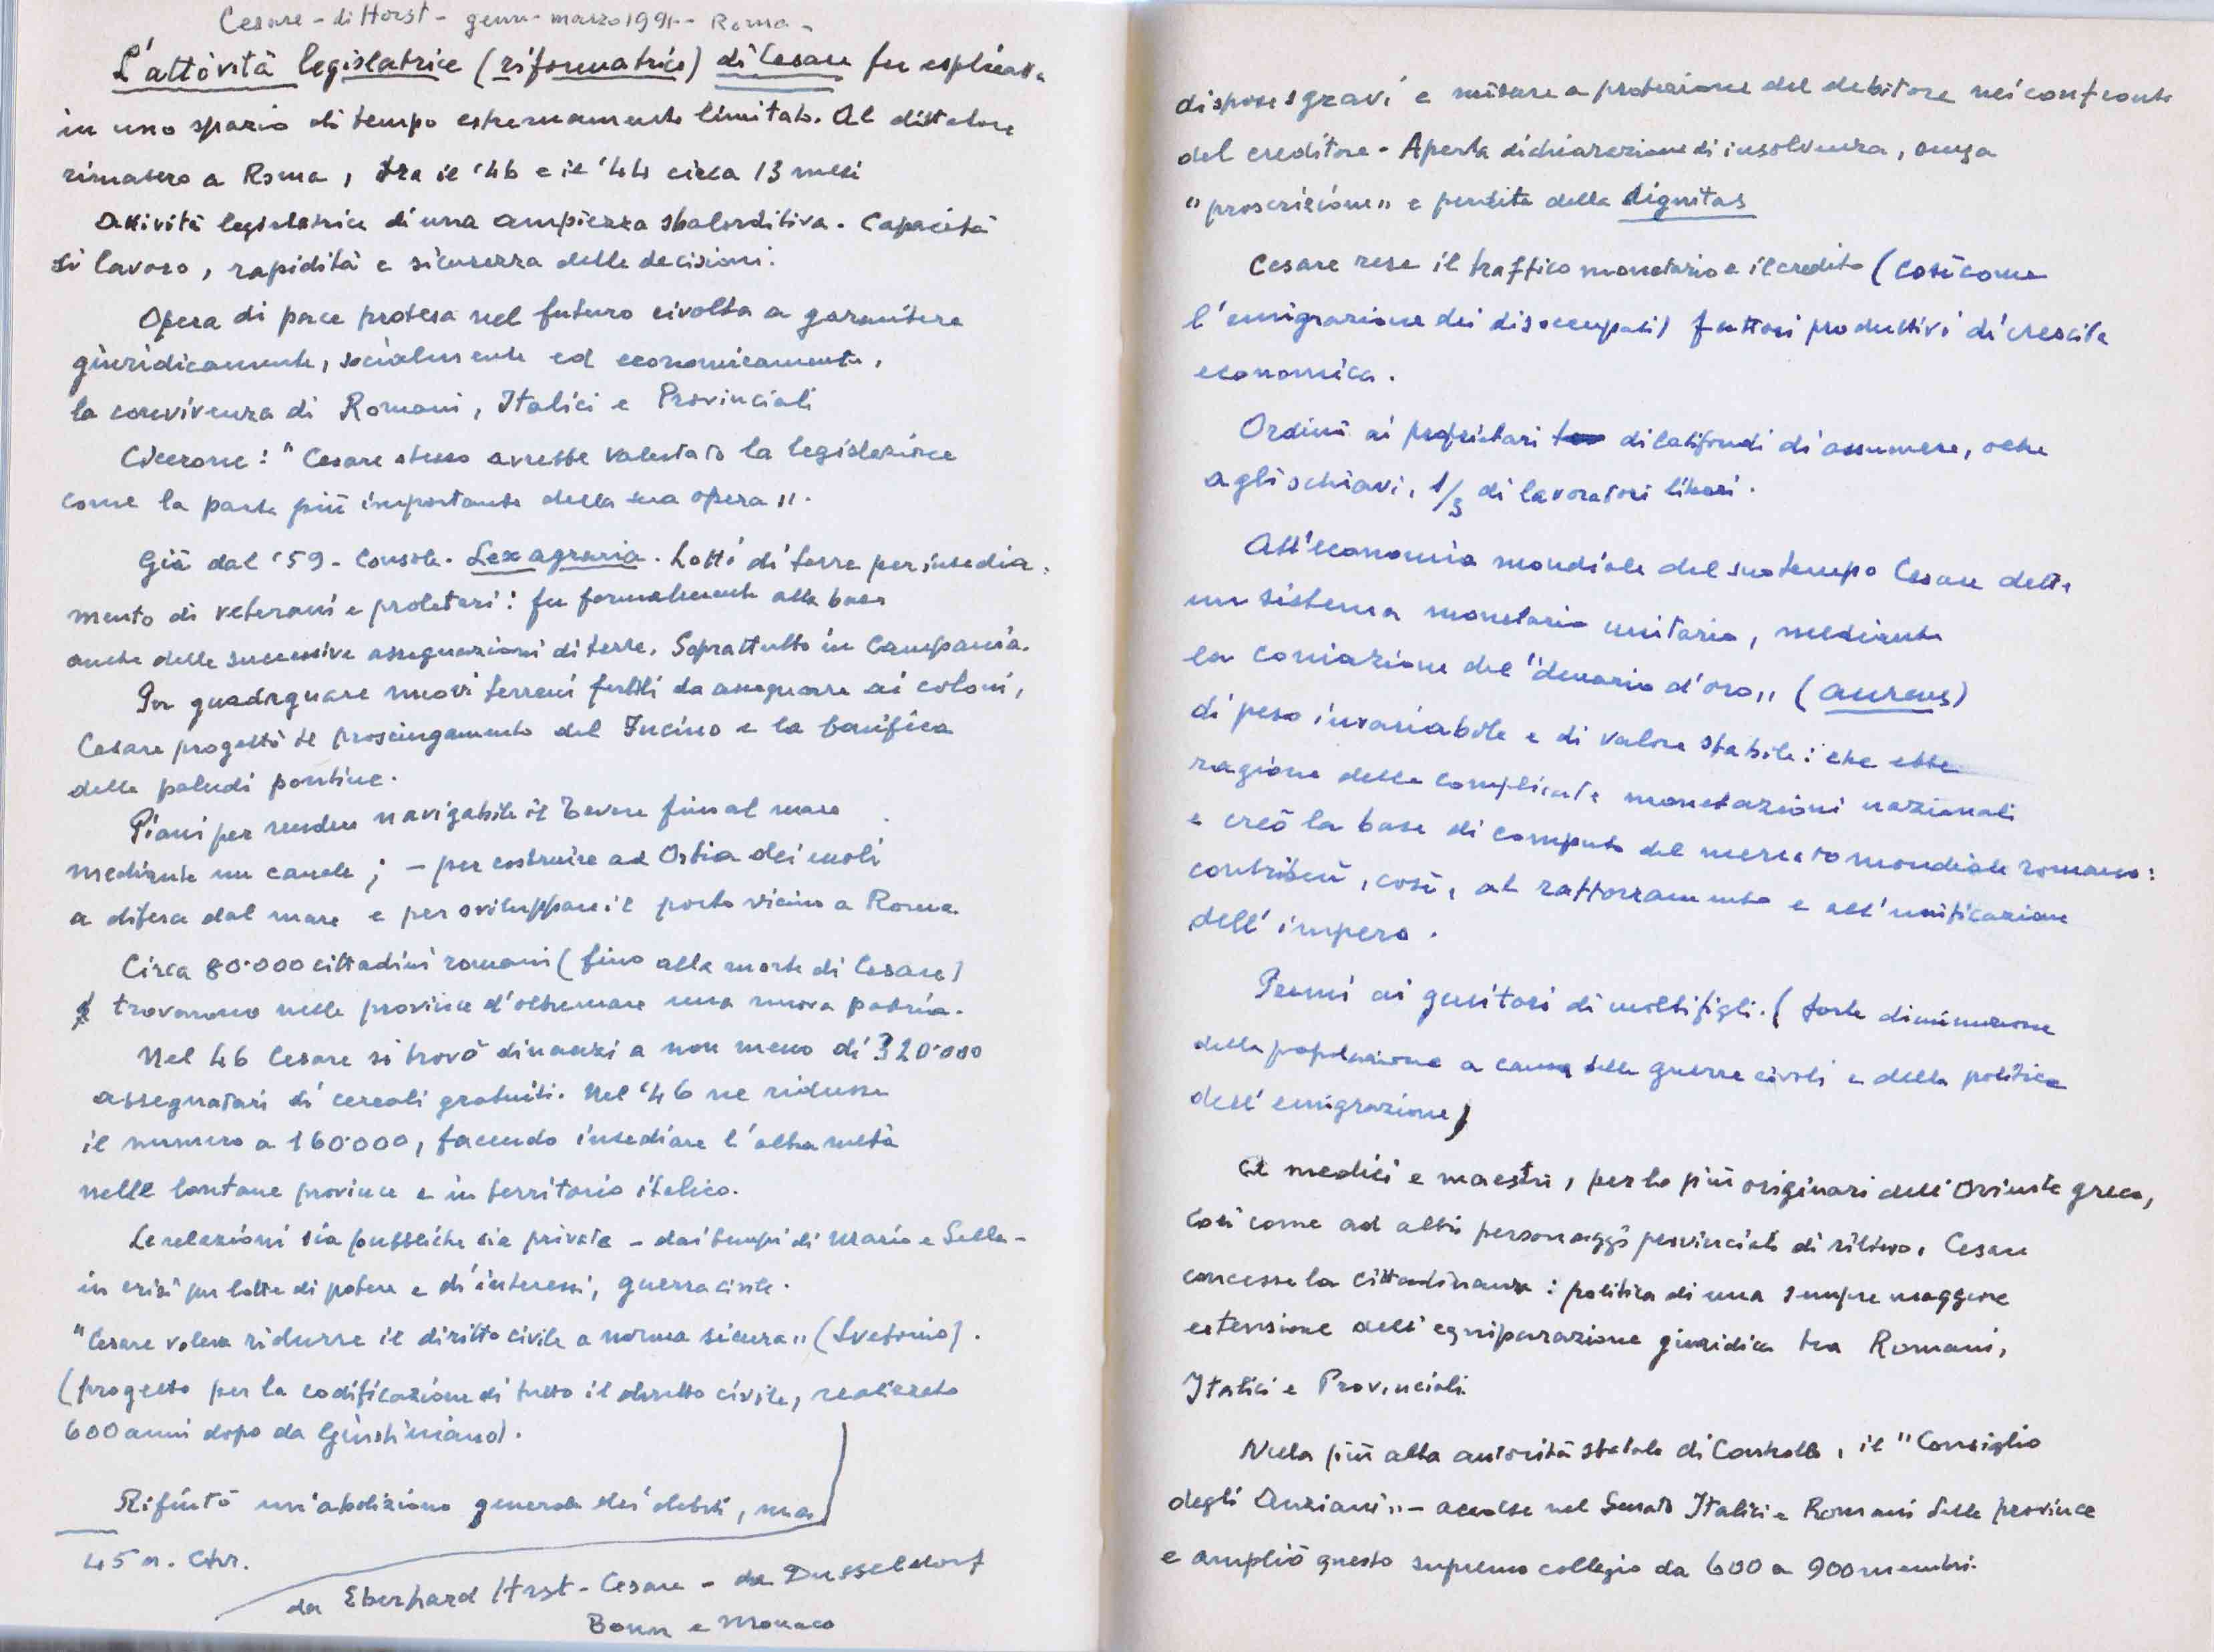 Cesare - di Horst - genn - marzo 1991 - Roma -
L'attività legislatrice (riformatrice) di Cesare fu esplicata
in uno spazio di tempo estremamente limitato. Al dittatore
rimasero a Roma, tra il '46 e il '44 circa 13 mesi
Attività legislatrice di una ampiezza sbalorditiva. Capacità
di lavoro, rapidità e sicurezza delle decisioni.
Opera di pace protesa nel futuro rivolta a garantire
giuridicamente, socialmente ed economicamente,
la convivenza di Romani, Italici e Provinciali
Cicerone: "Cesare stesso avrebbe valutato la legislazione
come la parte più importante della sua opera".
Già dal '59 - Console. Lex agraria. Lotti di terre per insedia-
mento di veterani e proletari: fu formalmente alla base
anche delle successive assegnazioni di terre. Soprattutto in Campania.
Per guadagnare nuovi terreni fertili da assegnare ai coloni,
Cesare progettò il prosciugamento del Fucino e la bonifica
delle paludi pontine.
Piani per rendere navigabile il Tevere fino al mare
mediante un canale; - per costruire ad Ostia dei moli
a difesa dal mare e per sviluppare il porto vicino a Roma.
Circa 80.000 cittadini romani (fino alla morte di Cesare)
trovarono nelle province d'oltremare una nuova patria.
Nel 46 Cesare si trovò dinanzi a non meno di 320.000
assegnatari di cereali gratuiti. Nel '46 ne ridusse
il numero a 160.000, facendo insediare l'altra metà
nelle lontane province e in territorio italico.
Le relazioni sia pubbliche sia private - dai tempi di Mario e Silla -
in crisi per lotte di potere e di interessi, guerra civile.
"Cesare voleva ridurre il diritto civile a norma sicura" (Svetonio).
(progetto per la codificazione di tutto il diritto civile, realizzato
600 anni dopo da Giustiniano).
Rifiutò un'abolizione generale dei debiti, ma
45 a. Chr.
da Eberhard Horst - Cesare - da Dusseldorf
Bonn e Monaco
dispose sgravi e misure a protezione del debitore nei confronti
del creditore - Aperta dichiarazione di insolvenza, senza
"proscrizione" e perdita della dignitas
Cesare rese il traffico monetario e il credito (così come
l'emigrazione dei disoccupati) fattori produttivi di crescita
economica.
Ordinò ai proprietari di latifondi di assumere, oltre
agli schiavi, 1/3 di lavoratori liberi.
All'economia mondiale del suo tempo Cesare dette
un sistema monetario unitario, mediante
la coniazione del "denario d'oro" (aureus)
di peso invariabile e di valore stabile: che ebbe
ragione delle complicate monetazioni nazionali
e creò la base di computo del mercato mondiale romano:
contribuì, così, al rafforzamento e all'unificazione
dell'impero.
Premi ai genitori di molti figli. (forte diminuzione
della popolazione a causa delle guerre civili e della politica
dell'emigrazione)
Ai medici e maestri, per lo più originari dell'Oriente greco,
così come ad altri personaggi provinciali di rilievo, Cesare
concesse la cittadinanza: politica di una sempre maggiore
estensione dell'equiparazione giuridica tra Romani,
Italici e Provinciali
Nella più alta autorità statale di Controllo, il "Consiglio
degli Anziani" - accolse nel Senato Italici e Romani delle province
e ampliò questo supremo collegio da 600 a 900 membri.